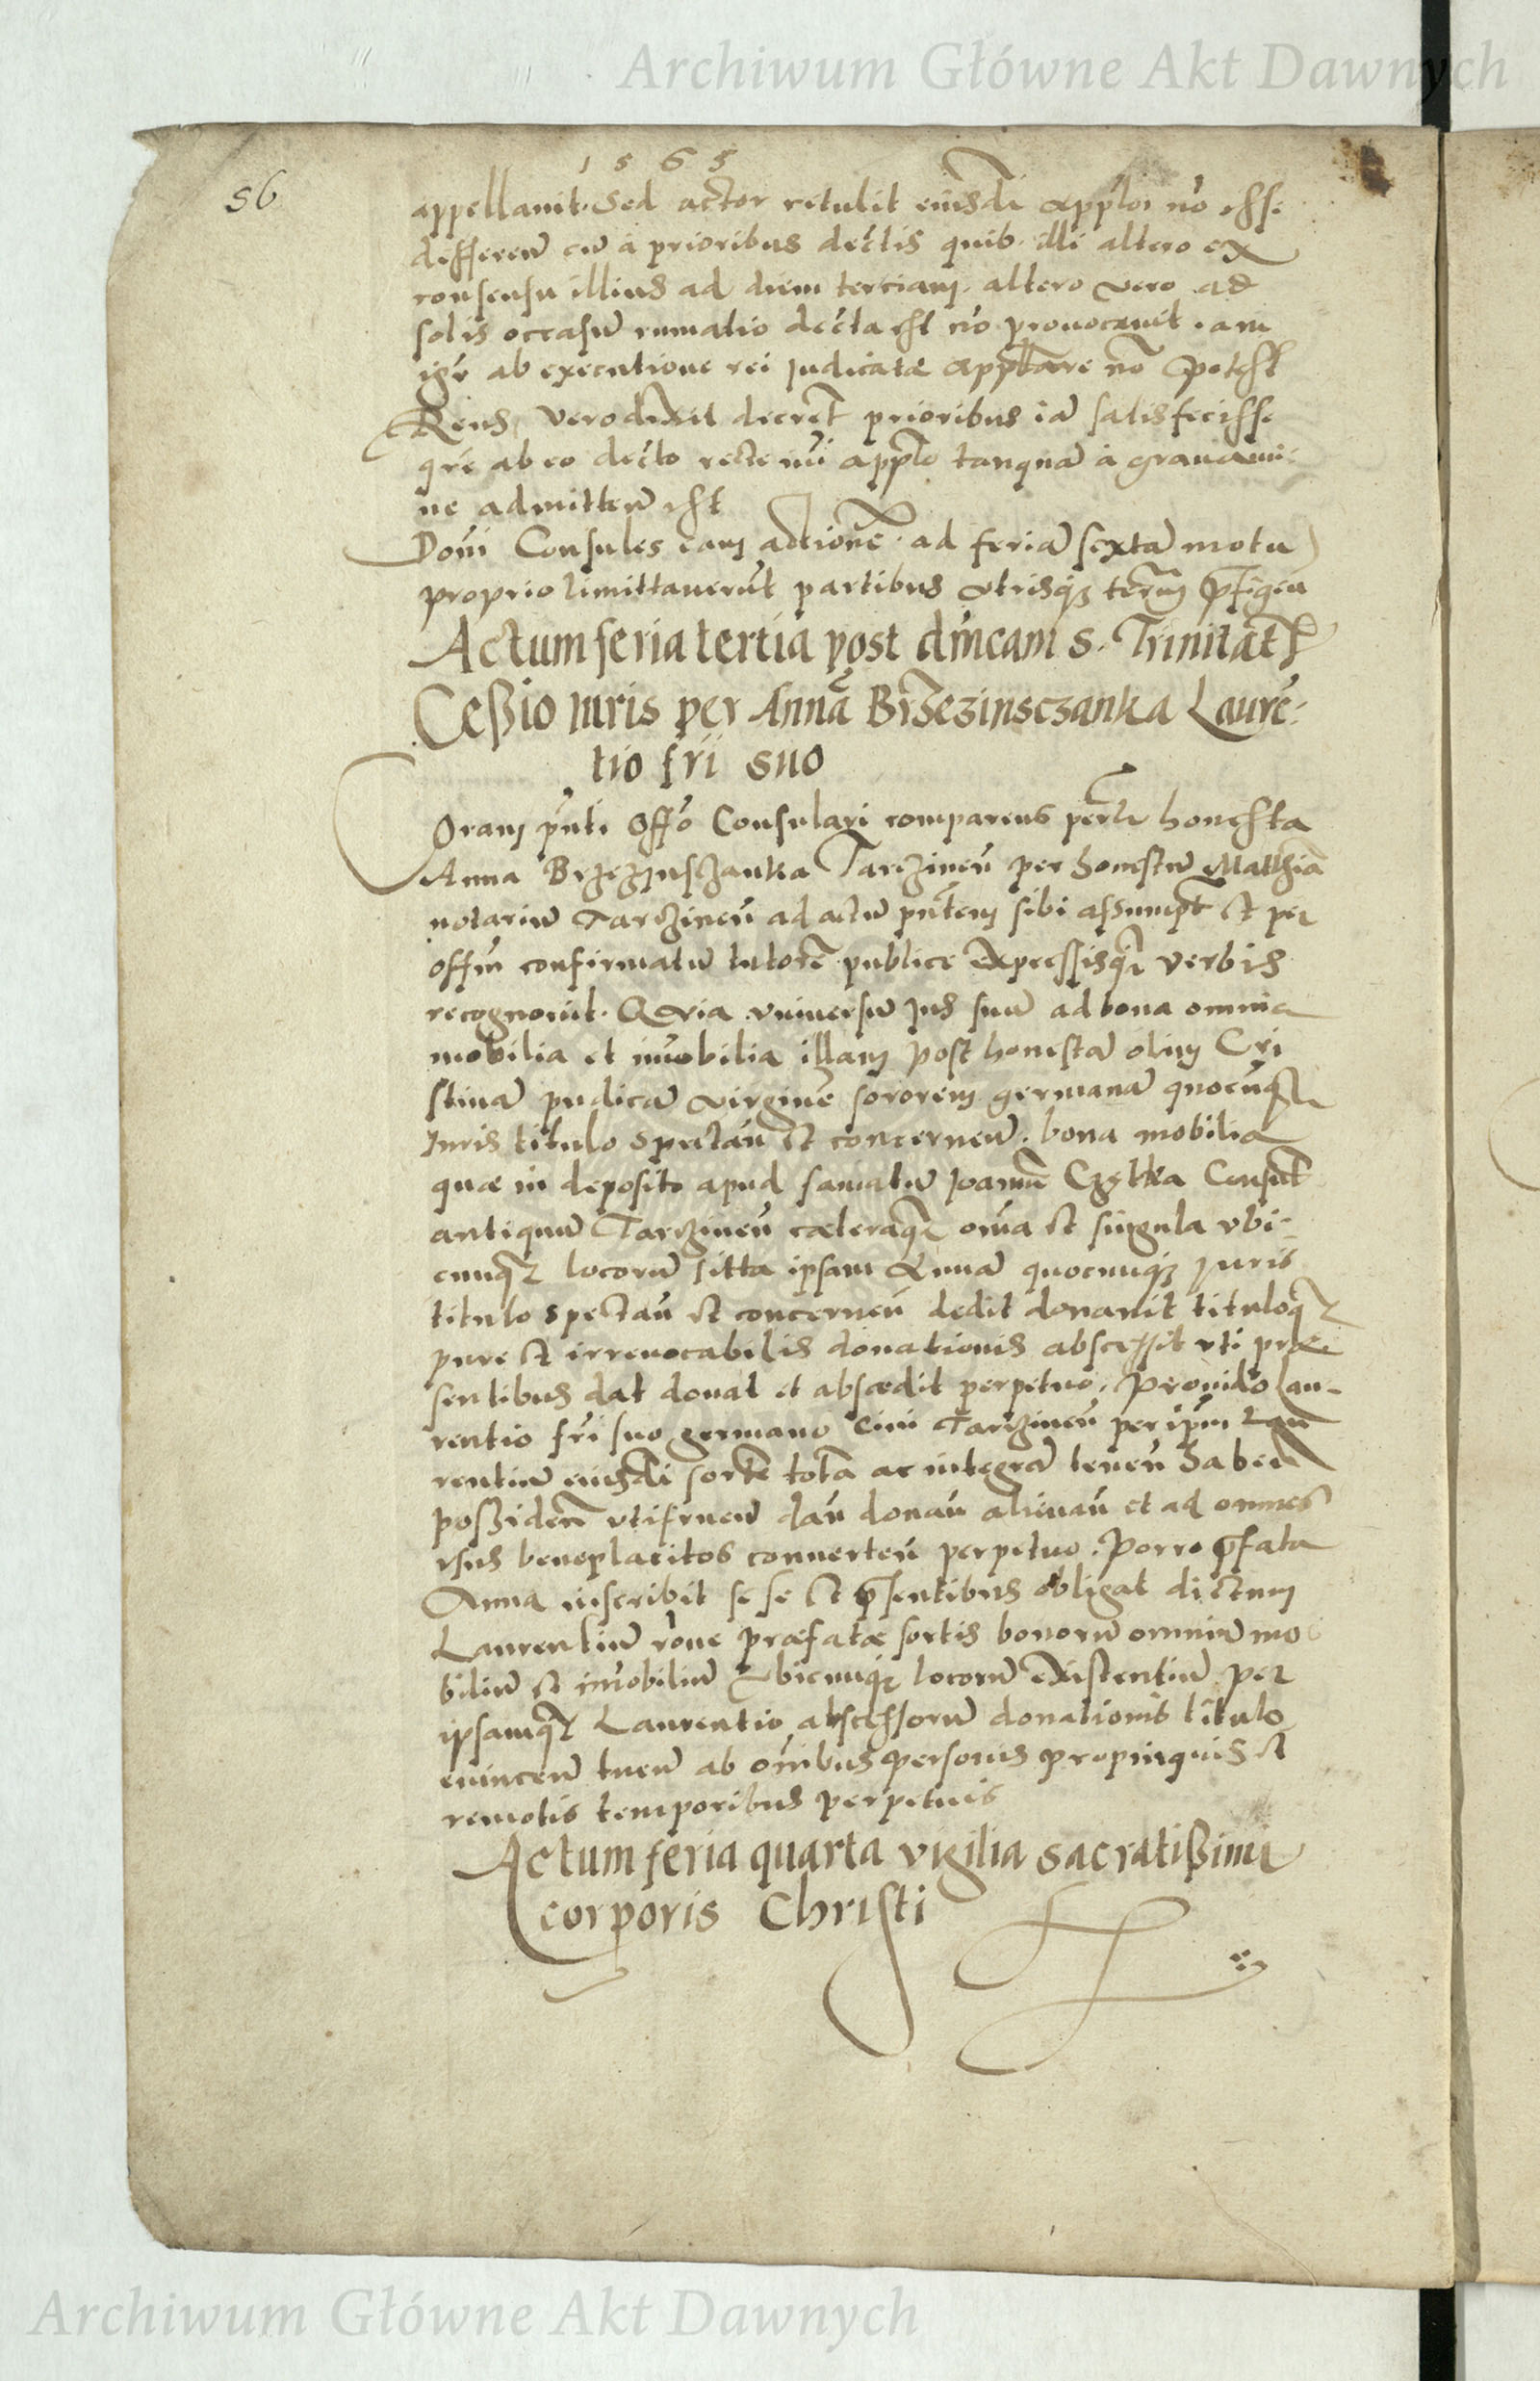 Archiwum Główne Akt Dawnych
1565
56
appellauit. Sed actor retulit eiusdē appłoi nō esse
defferen̄ cū à prioribus dec̄tis quib. illi altero ex
consensu illius ad diem terciam. altero vero ad
solis occasum dec̄ta est nō prouocauit. am
igr̄ ab executione rei judicatæ appłare nō potest
Reus vero dixit decret̄ prioribus iā satisfecisse
qr̄e ab eo dec̄to recte appło tanquā à grauami-
ne admitten̄ est
Dom̄i Consules eam actionē ad feriā sextā motu
proprio limittauerūt partibus vtrisq; term̄ p̄figen̄
Actum feria tertia post dn̄icam S. Trinitat
Ceßio iuris per Annā Brzezinsczanka Laurē-
tio fr̄i suo
Coram pn̄ti Offō Consulari comparens honesta
Anna Brzezinsczanka Tarczinen̄ per honestū Matthiā
notariū Tarczinen̄ ad actū pn̄tem sibi assumpt̄ et per
offm̄ confirmatū tutorē publice expressisq; verbis
recognouit. Quia vniuersū jus suū ad bona omnia
mobilia et im̄obilia illam post honestā olim Cri
stinā pudicā virginē sororem germanā quocūq;
Iuris titulo spectan̄ et concernen̄. bona mobilia
quæ in deposito apud famatū Joannē Consul̄
antiquum Tarczinen̄ cæteraq; om̄ia et singula vbi-
cunq; locorū sitta ipsam Annā quocunq; Juris
titulo spectan̄ et concernen̄ dedit donauit tituloq;
pure et irreuocabilis donationis abscessit vti præ-
sentibus dat donat et abscedit perpetuo. Prouido Lau-
rentio fr̄i suo germano Ciui Tarczinen̄ per ipm̄ Lau
rentiū eiusdē sortē totā ac integrā tenen̄ haben̄
poßiden̄ vtifruen̄ dan̄ donan̄ alienan̄ et ad omnes
vsus beneplacitos conuerten̄ perpetuo. Porro p̄fata
Anna inscribit se se et p̄sentibus obligat dictum
Laurentiū rōne præfatæ sortis bonorū omniū mo
biliū et im̄obiliū vbicunq; locorū existentiū per
ipsamq; Laurentio abscessorū donationis titulo
euincen̄ tuen̄ ab om̄ibus personis propinquis et
remotis temporibus perpetuis
Actum feria quarta vigilia sacratißimi
corporis Christi
Archiwum Główne Akt Dawnych